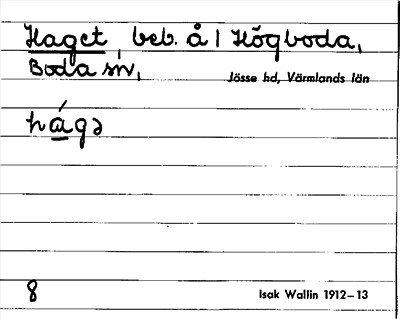 Haget, beb. å 1 Högboda,
Boda sn,
Jösse hd, Värmlands län
hágə
8
Isak Wallin 1912–13